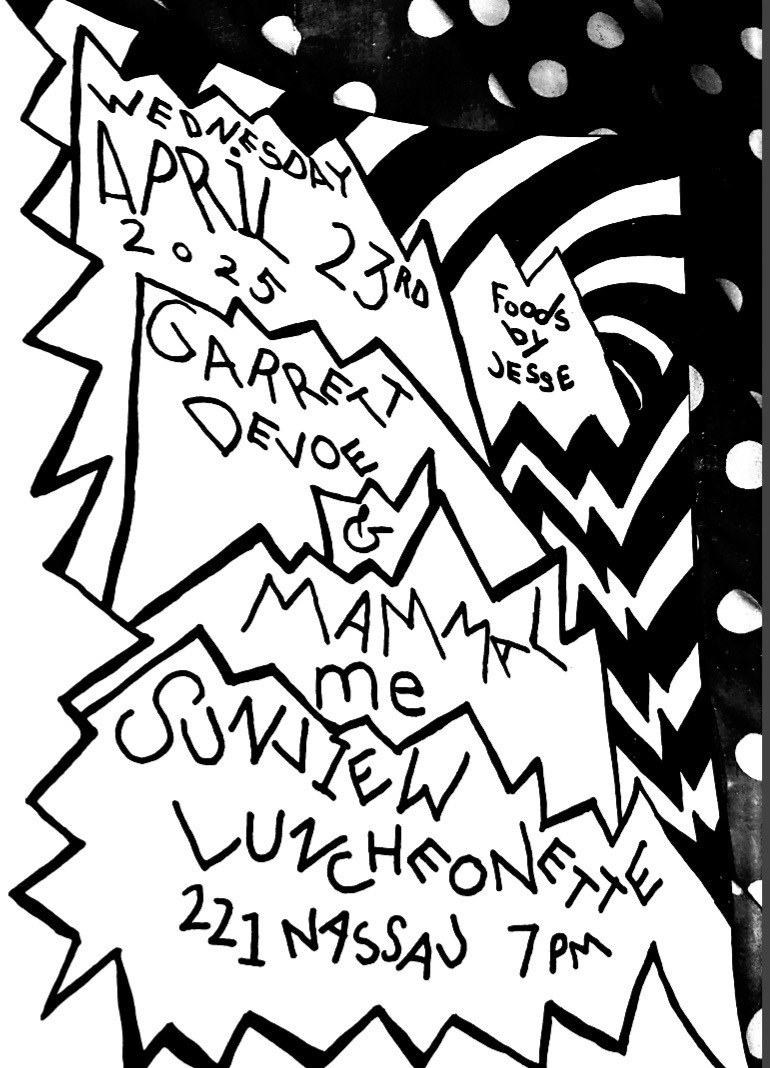 WEDNESDAY
APRIL 23RD
2025
Foods
by
JESSE
GARRETT
DEVOE
&
MAMMAL
me
SUNVIEW
LUNCHEONETTE
221 NASSAU 7PM